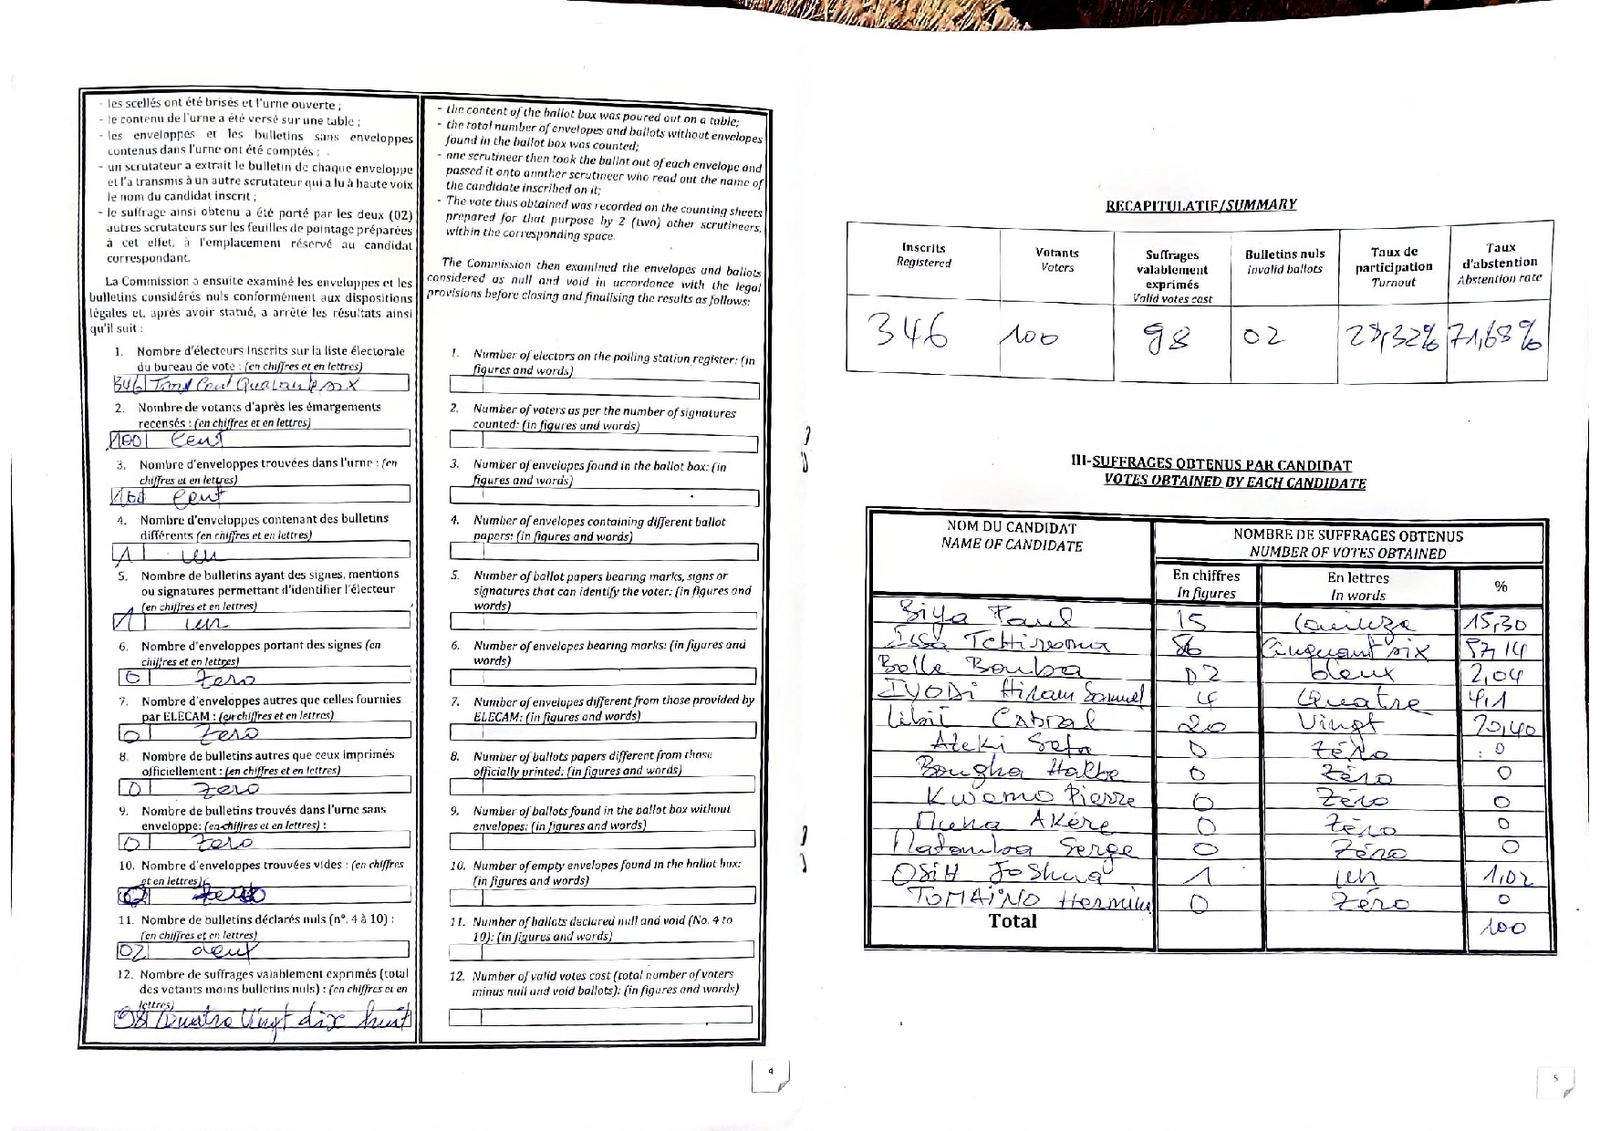 - les scellés ont été brisés et l'urne ouverte ;
- le contenu de l'urne a été versé sur une table ;
- les enveloppes et les bulletins sans enveloppes
contenus dans l'urne ont été comptés ;
- un scrutateur a extrait le bulletin de chaque enveloppe
et l'a transmis à un autre scrutateur qui a lu à haute voix
le nom du candidat inscrit ;
- le suffrage ainsi obtenu a été porté par les deux (02)
autres scrutateurs sur les feuilles de pointage préparées
à cet effet, à l'emplacement réservé au candidat
correspondant.
La Commission a ensuite examiné les enveloppes et les
bulletins considérés nuls conformément aux dispositions
légales et, après avoir statué, a arrêté les résultats ainsi
qu'il suit :
1. Nombre d'électeurs inscrits sur la liste électorale
du bureau de vote : (en chiffres et en lettres)
346 Trois Cent Quarante six
2. Nombre de votants d'après les émargements
recensés : (en chiffres et en lettres)
100 Cent
3. Nombre d'enveloppes trouvées dans l'urne : (en
chiffres et en lettres)
100 Cent
4. Nombre d'enveloppes contenant des bulletins
différents (en chiffres et en lettres)
1 un
5. Nombre de bulletins ayant des signes, mentions
ou signatures permettant d'identifier l'électeur
(en chiffres et en lettres)
1 un
6. Nombre d'enveloppes portant des signes (en
chiffres et en lettres)
0 Zero
7. Nombre d'enveloppes autres que celles fournies
par ELECAM : (en chiffres et en lettres)
0 Zero
8. Nombre de bulletins autres que ceux imprimés
officiellement : (en chiffres et en lettres)
0 Zero
9. Nombre de bulletins trouvés dans l'urne sans
enveloppe: (en chiffres et en lettres) :
0 Zero
10. Nombre d'enveloppes trouvées vides : (en chiffres
et en lettres)
11. Nombre de bulletins déclarés nuls (n°. 4 à 10) :
(en chiffres et en lettres)
02 deux
12. Nombre de suffrages valablement exprimés (total
des votants moins bulletins nuls) : (en chiffres et en
lettres)
98 Quatre Vingt dix huit
- the content of the ballot box was poured out on a table;
- the total number of envelopes and ballots without envelopes
found in the ballot box was counted;
- one scrutineer then took the ballot out of each envelope and
passed it onto another scrutineer who read out the name of
the candidate inscribed on it;
- The vote thus obtained was recorded on the counting sheets
prepared for that purpose by 2 (two) other scrutineers,
within the corresponding space.
The Commission then examined the envelopes and ballots
considered as null and void in accordance with the legal
provisions before closing and finalising the results as follows:
1. Number of electors on the polling station register: (in
figures and words)
2. Number of voters as per the number of signatures
counted: (in figures and words)
3. Number of envelopes found in the ballot box: (in
figures and words)
4. Number of envelopes containing different ballot
papers: (in figures and words)
5. Number of ballot papers bearing marks, signs or
signatures that can identify the voter: (in figures and
words)
6. Number of envelopes bearing marks: (in figures and
words)
7. Number of envelopes different from those provided by
ELECAM: (in figures and words)
8. Number of ballots papers different from those
officially printed: (in figures and words)
9. Number of ballots found in the ballot box without
envelopes: (in figures and words)
10. Number of empty envelopes found in the ballot box:
(in figures and words)
11. Number of ballots declared null and void (No. 4 to
10): (in figures and words)
12. Number of valid votes cost (total number of voters
minus null and void ballots): (in figures and words)
4
RECAPITULATIF/SUMMARY
Inscrits Registered
Votants Voters
Suffrages valablement exprimés Valid votes cost
Bulletins nuls Invalid ballots
Taux de participation Turnout
Taux d'abstention Abstention rate
346 100 98 02 28,32% 71,68%
III-SUFFRAGES OBTENUS PAR CANDIDAT
VOTES OBTAINED BY EACH CANDIDATE
NOM DU CANDIDAT
NAME OF CANDIDATE
NOMBRE DE SUFFRAGES OBTENUS
NUMBER OF VOTES OBTAINED
En chiffres In figures
En lettres In words
%
Biya Paul 15 Quinze 15,30
Issa Tchiroma 56 Cinquant six 57,14
Bello Bouba 02 deux 2,04
IYODI Hiram Samuel 4 Quatre 4,1
Libii Cabral 20 Vingt 20,40
Ateki Seta 0 Zéro 0
Bougha Hagbe 0 Zéro 0
Kwemo Pierre 0 Zéro 0
Muna Akére 0 Zéro 0
Matomba Serge 0 Zéro 0
OSIH Joshua 1 un 1,02
TOMAINO Hermine 0 Zéro 0
Total 100
5